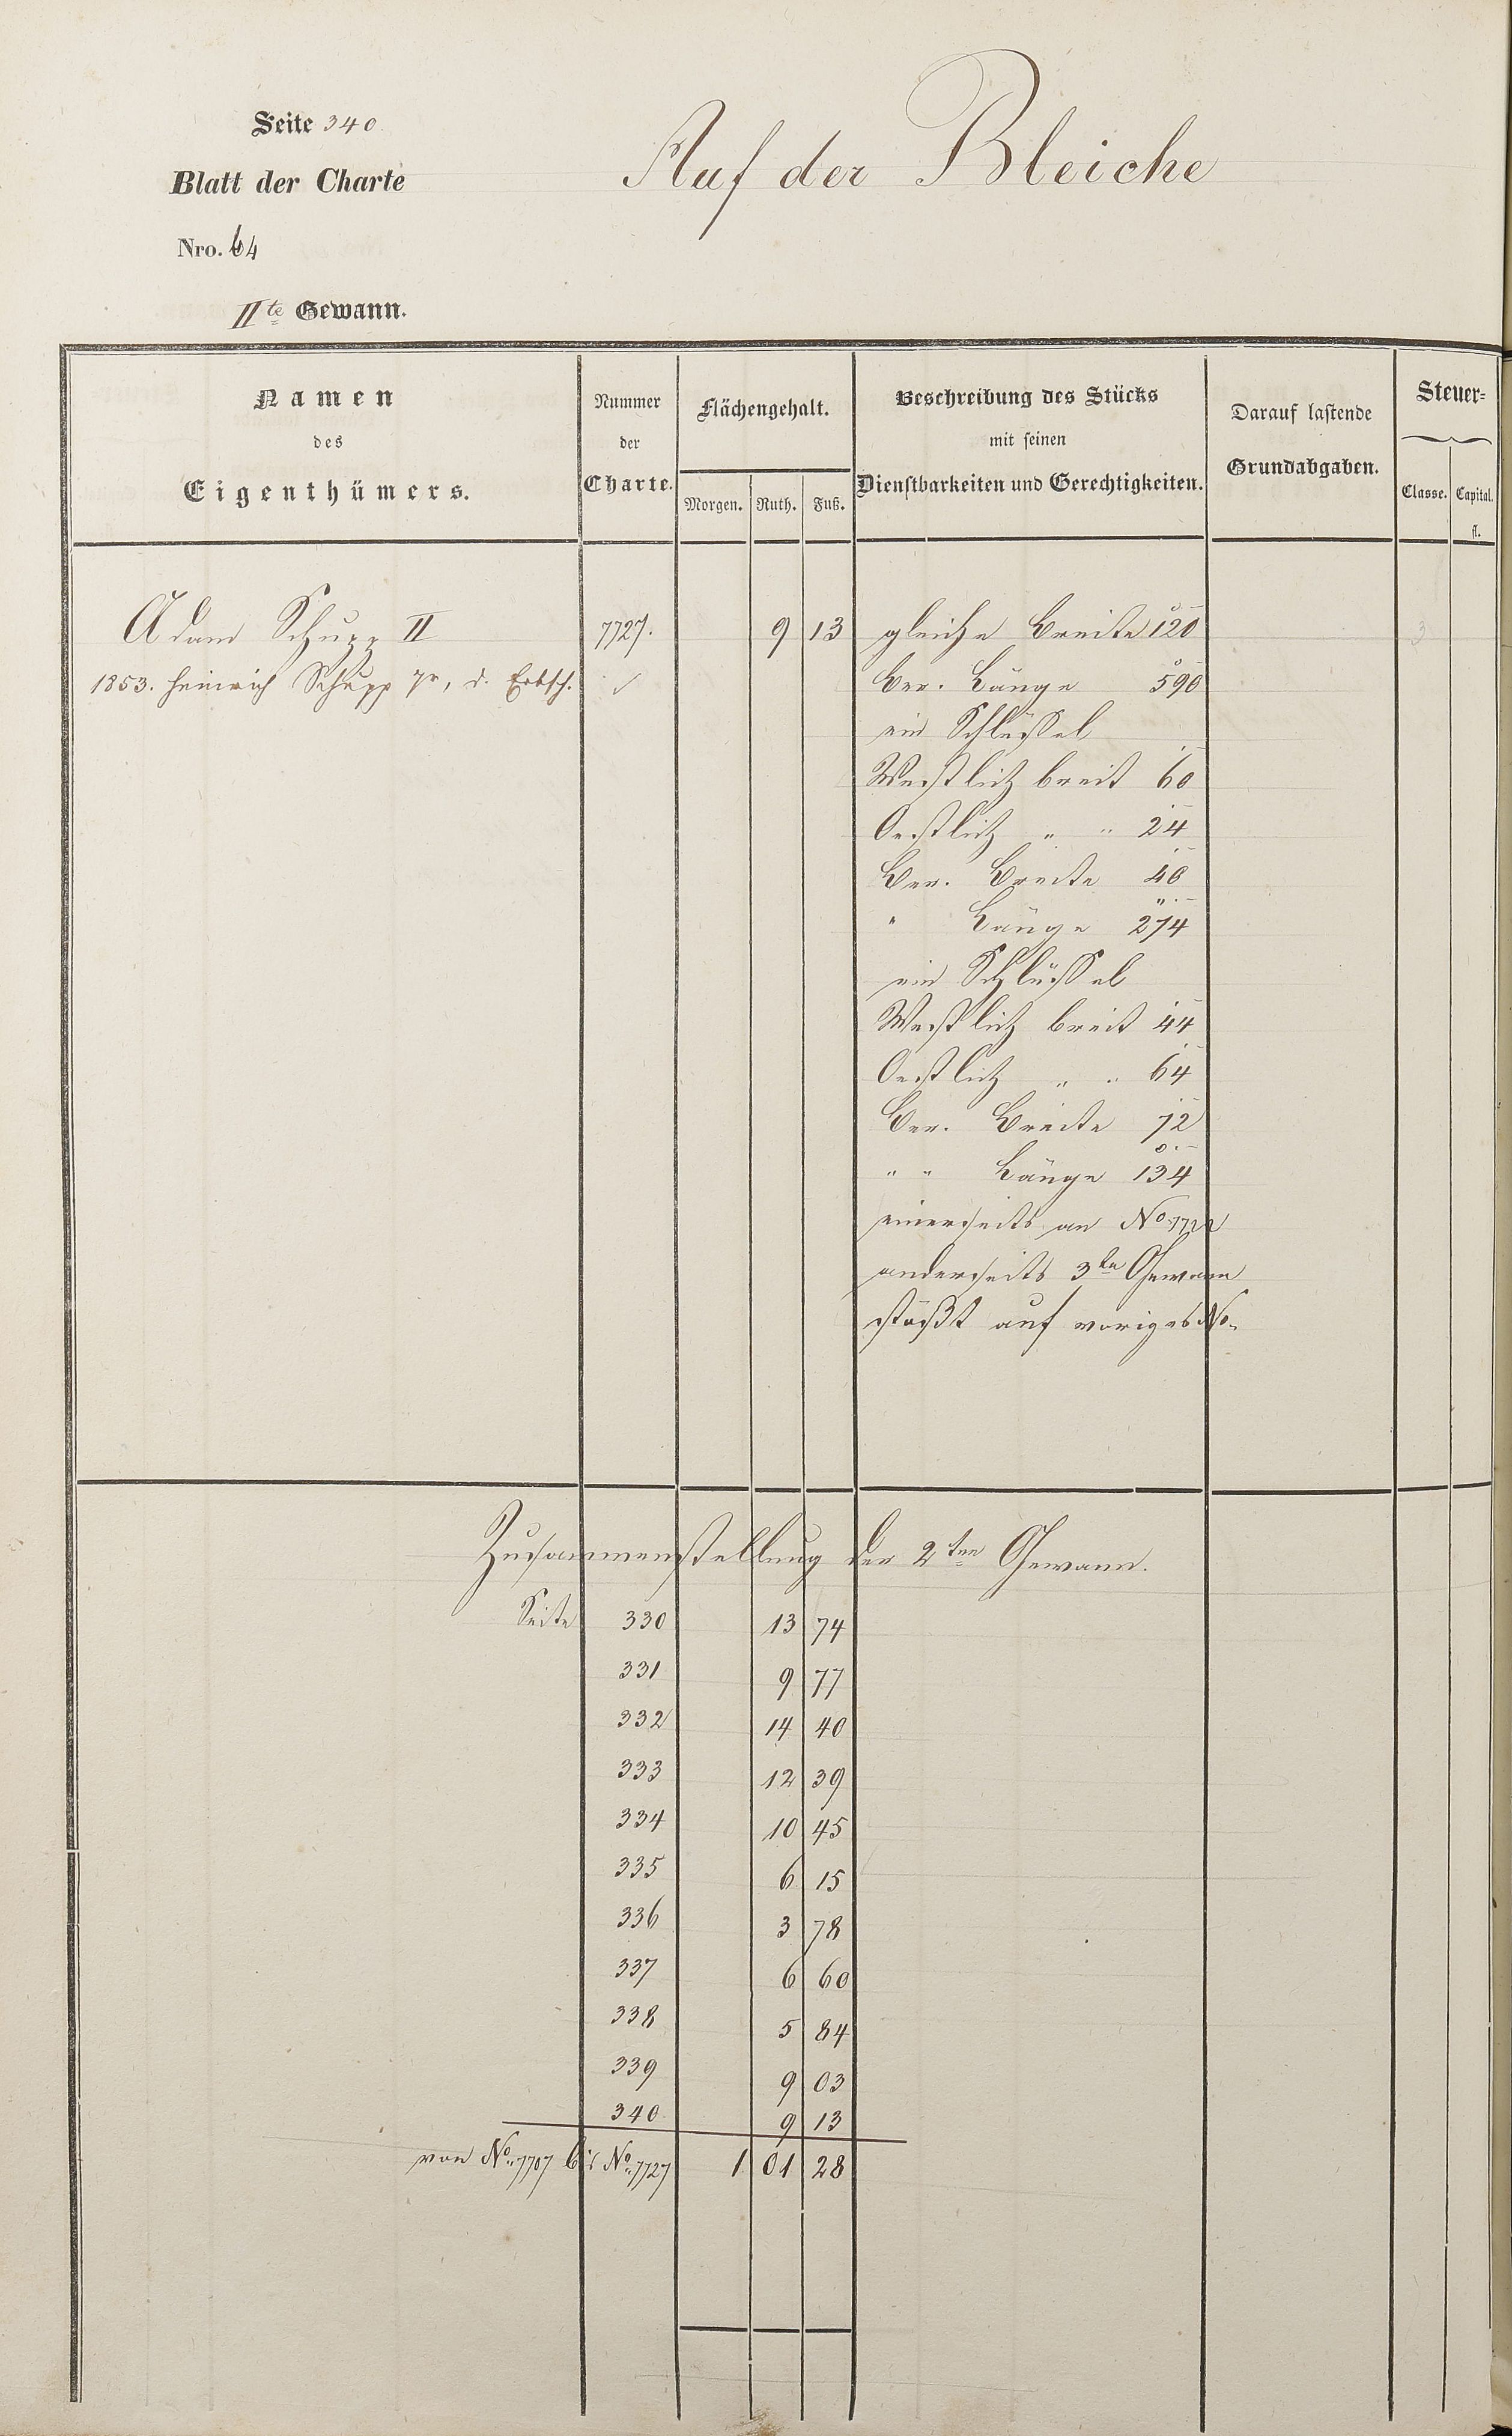 Seite 340
Auf der Bleiche
Blatt der Charte
Nro. 64
IIte Gewann.
Namen des Eigenthümers.
Nummer der Charte.
Flächengehalt.
Morgen. Ruth. Fuß.
Beschreibung des Stücks mit seinen Dienstbarkeiten und Gerechtigkeiten.
Darauf lastende Grundabgaben.
Steuer-
Classe. Capital. fl.
Adam Schupp II 7727. 9 13 gleiche Breite 120 3
1853. Heinrich Schupp gr, d. Erbsch. ✓ Ber. Länge 590
ein Schlüssel
Westlich breit 60
Oestlich " " 24
Ber. Breite 40
" Länge 274
ein Schlüssel
Westlich breit 44
Oestlich " " 64
Ber. Breite 72
" " Länge 134
einerseits an No.
anderseits 3te Gewann
stößt auf voriges No.
Zusammenstellung der 2ten Gewann.
Seite 330 13 74
331 9 77
332 14 40
333 12 39
334 10 45
335 6 15
336 3 78
337 6 60
338 5 84
339 9 03
340 9 13
von No. 7707 bis No. 7727 1 01 28